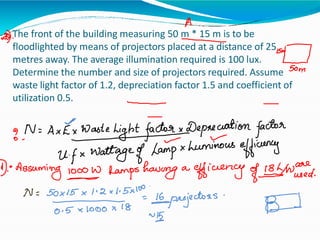 A
2) The front of the building measuring 50 m * 15 m is to be
floodlighted by means of projectors placed at a distance of 25
metres away. The average illumination required is 100 lux.
Determine the number and size of projectors required. Assume
waste light factor of 1.2, depreciation factor 1.5 and coefficient of
utilization 0.5.
50m
N = A x E x Waste Light factor x Depreciation factor
U f x Wattage of Lamp x Luminous efficiency
1) • Assuming 1000 W Lamps having a efficiency of 18 L/W are
used.
N = 50x15 x 1.2 x 1.5x100 = 16 projectors.
0.5 x 1000 x 18
~15